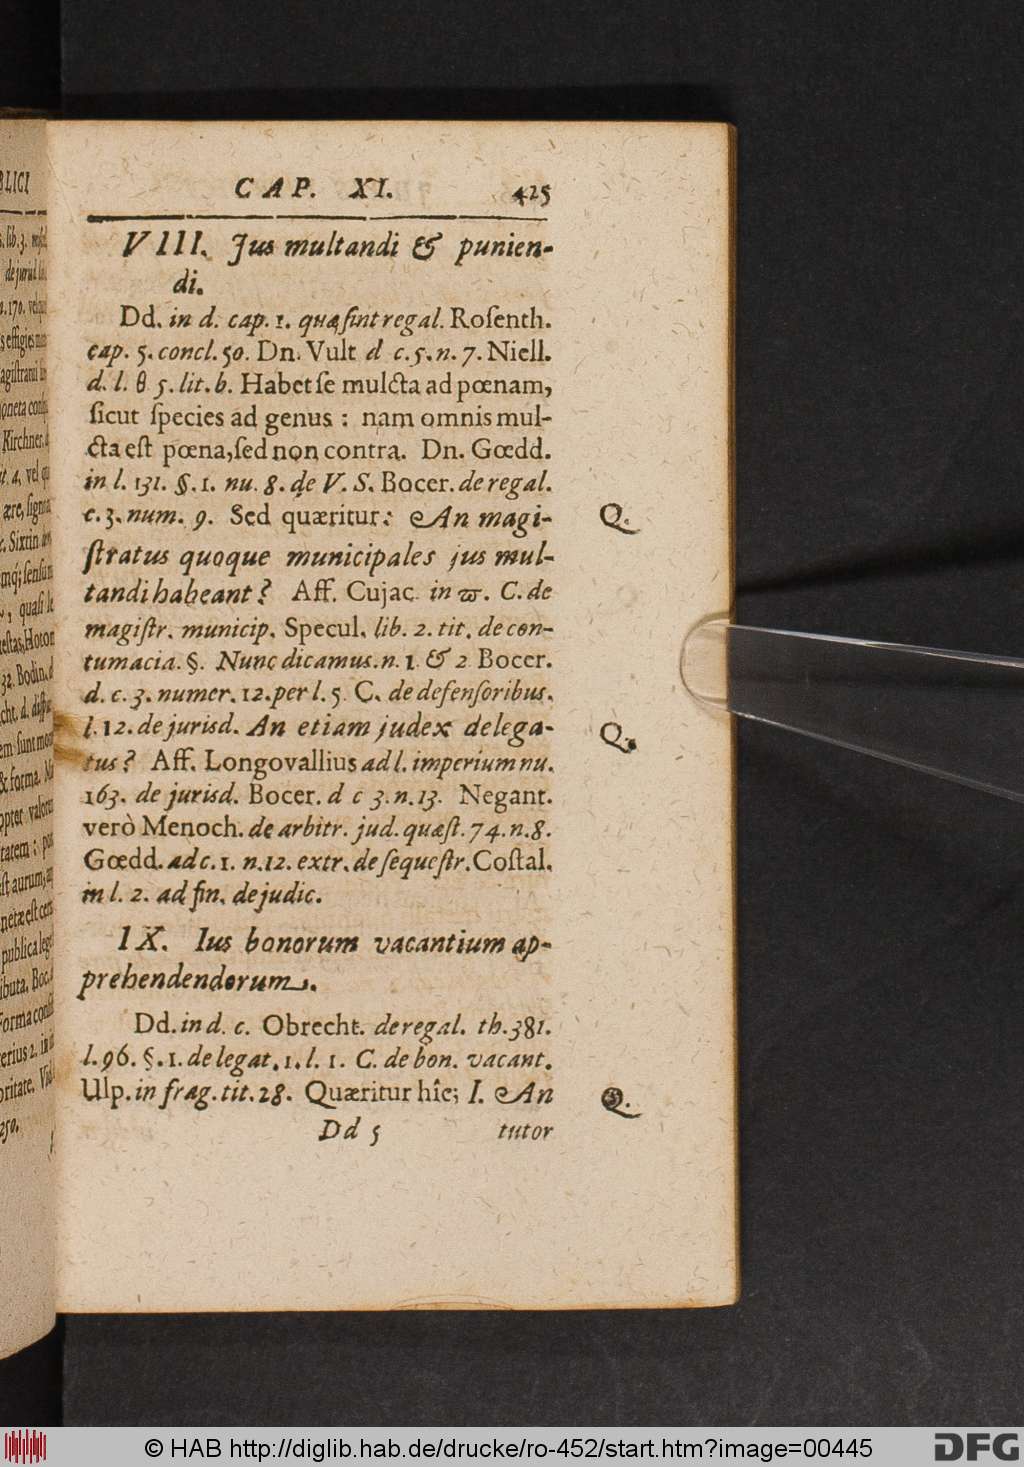 CAP. XI. 425
VIII. Jus multandi & punien-
di.
Dd. in d. cap. 1. quæ sint regal. Rosenth.
cap. 5. concl. 50. Dn. Vult d c. 5. n. 7. Niell.
d. l. θ 5. lit. b. Habet se mulcta ad pœnam,
sicut species ad genus : nam omnis mul-
cta est pœna, sed non contra. Dn. Gœdd.
in l. 131. §. 1. nu. 8. de V. S. Bocer. de regal.
c. 3. num. 9. Sed quæritur: An magi- Q.
stratus quoque municipales jus mul-
tandi habeant? Aff. Cujac. in ϖ. C. de
magistr. municip. Specul. lib. 2. tit. de con-
tumacia. §. Nunc dicamus. n. 1 & 2 Bocer.
d. c. 3. numer. 12. per l. 5 C. de defensoribus.
l. 12. de jurisd. An etiam judex delega- Q.
tus? Aff. Longovallius ad l. imperium nu.
163. de jurisd. Bocer. d c 3. n. 13. Negant.
verò Menoch. de arbitr. jud. quæst. 74. n. 8.
Gœdd. ad c. 1. n. 12. extr. de sequestr. Costal.
in l. 2. ad fin. de judic.
IX. Ius bonorum vacantium ap-
prehendendorum.
Dd. in d. c. Obrecht. de regal. th. 381.
l. 96. §. 1. de legat. 1. l. 1. C. de bon. vacant.
Ulp. in frag. tit. 28. Quæritur hîc; I. An Q.
Dd 5 tutor
BLICI
lib. 3.
de jurid
1. 170.
effigies
Kirchner.
4. vel
ære, signo
Sixtin
sensum
, quasi
Hotom
32. Bodin. d
d. disp
em sunt
& forma.
valorem
tatem :
st aurum,
netæ est
publica
ibuta. Boc.
Forma
erius 2. in
oritate.
250.
© HAB http://diglib.hab.de/drucke/ro-452/start.htm?image=00445
DFG